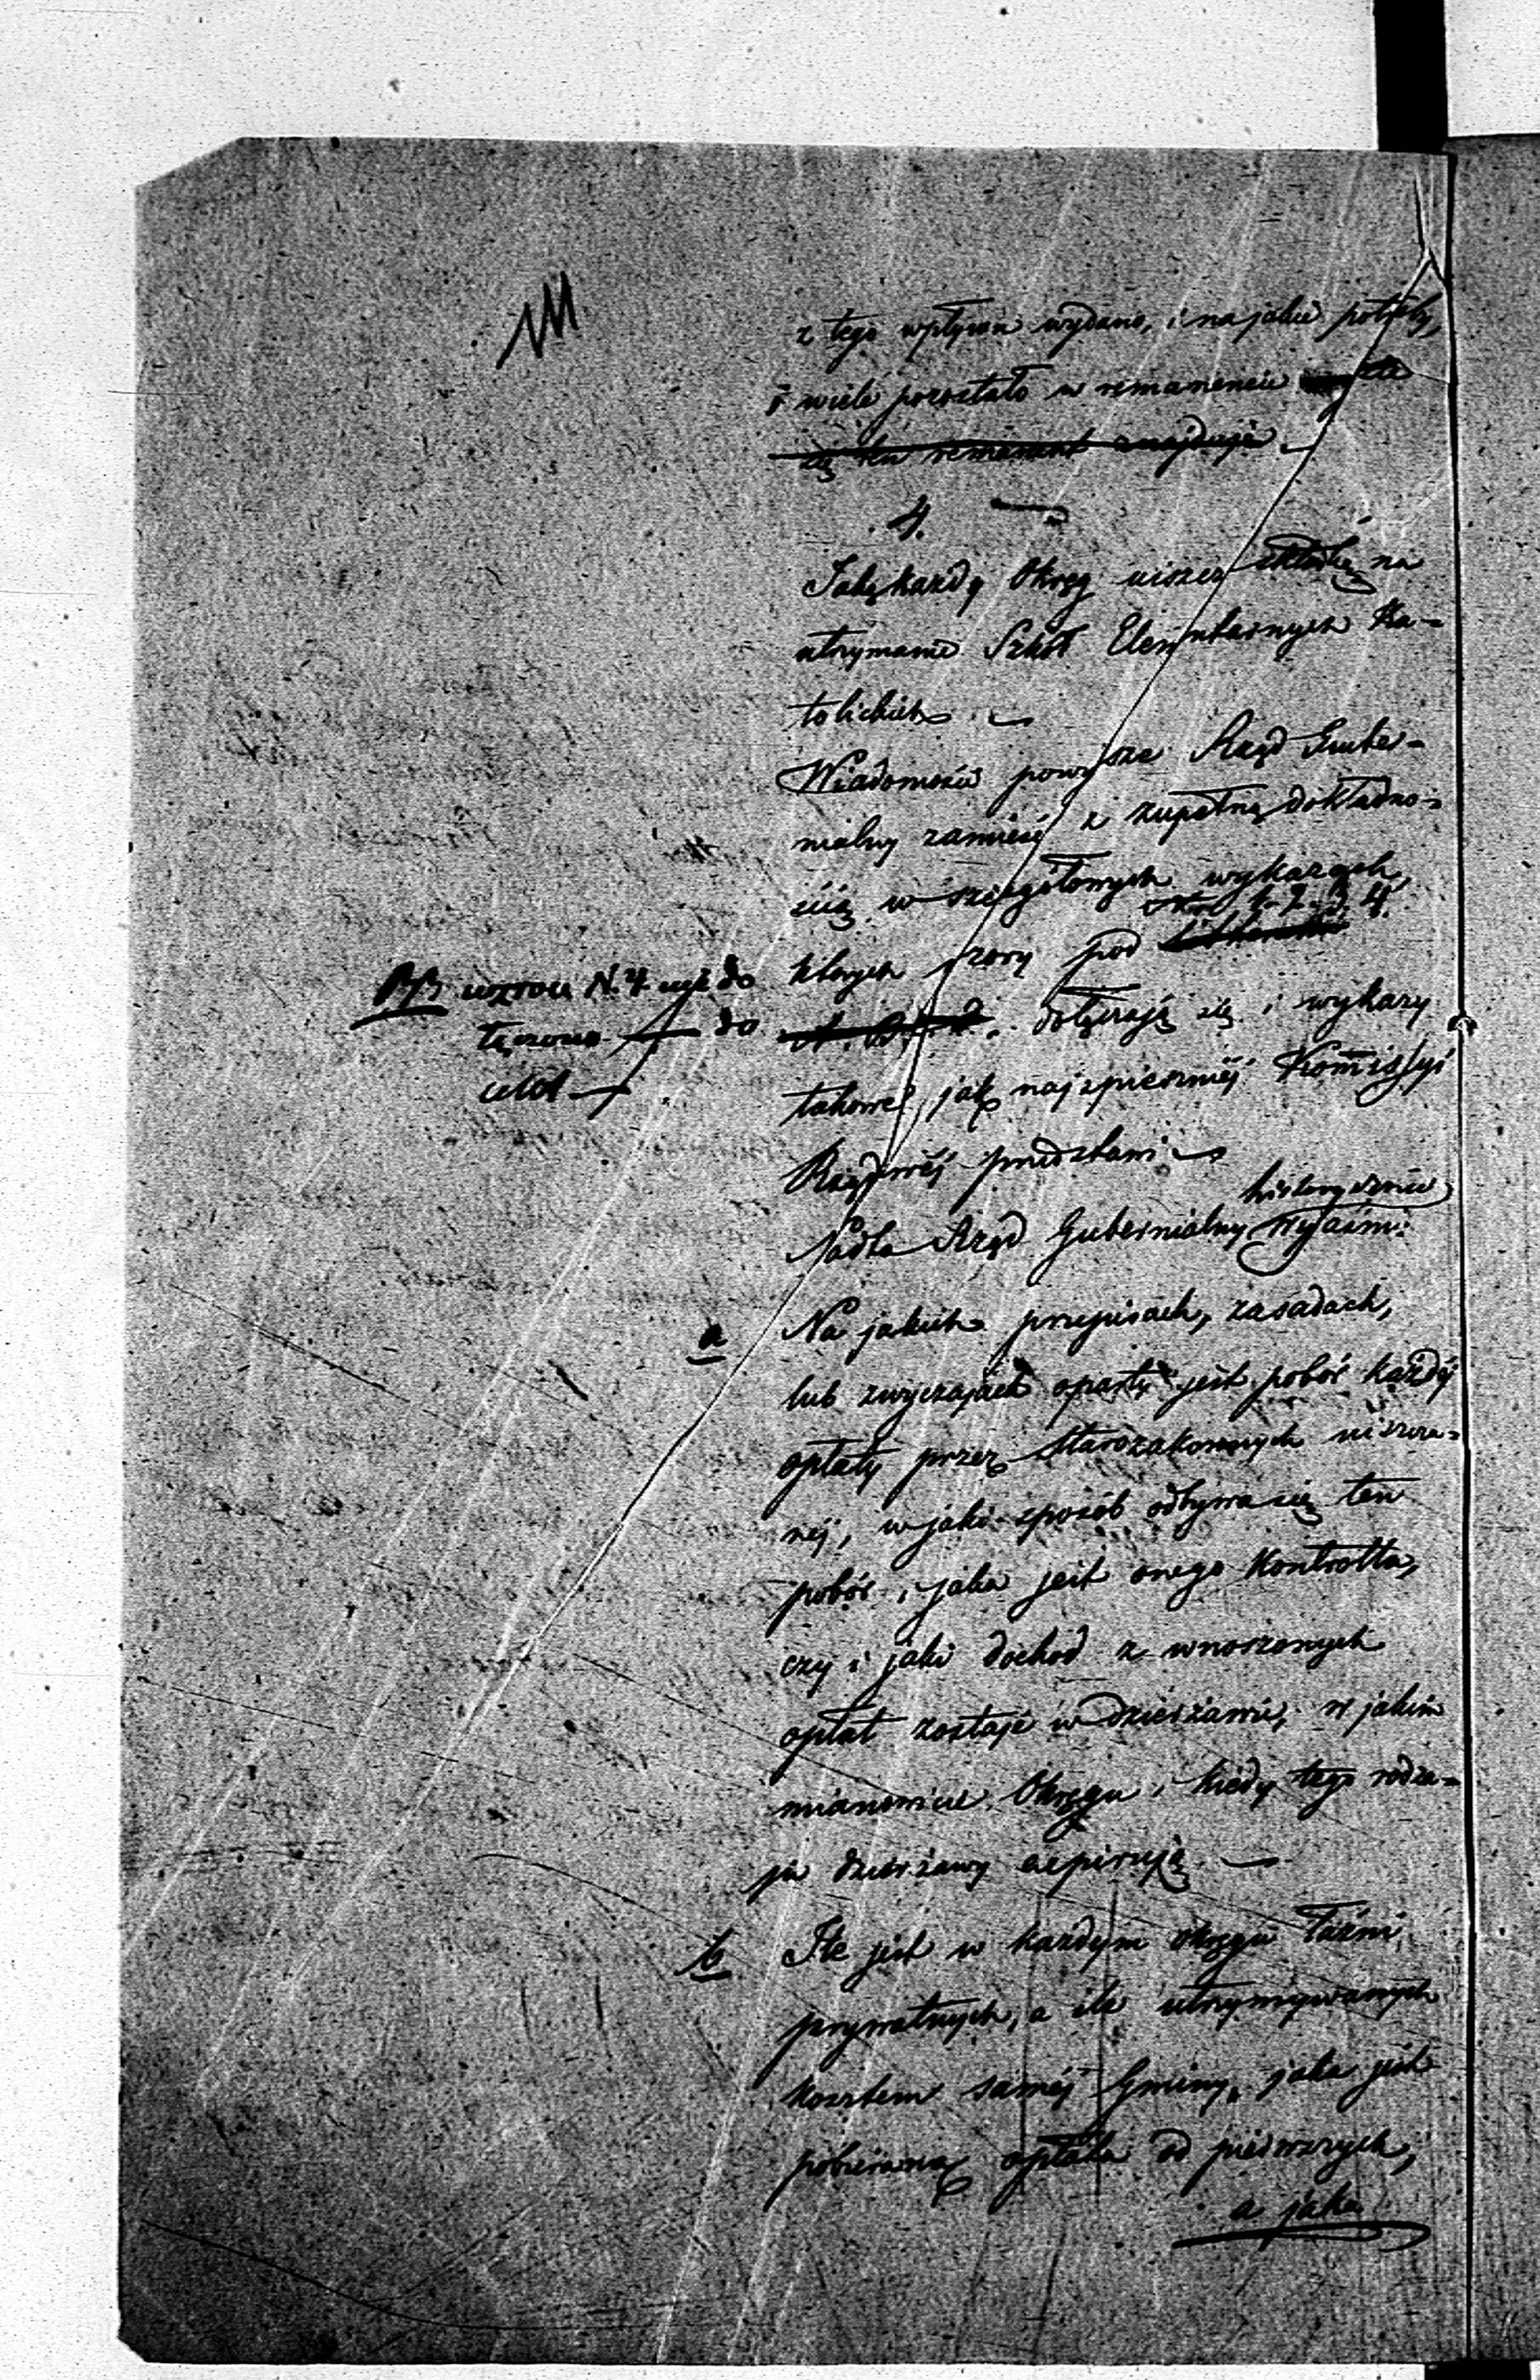 z tego wpływu wydano, i na jakie potrzeby,
i wiele pozostało w remanencie
się ten remanent znajduje
4.
Jaką każdy Okręg uiszcza składkę na
utrzymanie Szkół Elementarnych Ka-
tolickich
Wiadomości powyższe Rząd Guber-
nialny zamieści z zupełną dokładno-
ścią w szczegółowych wykazach,
Nr 1. 2. 3. 4.
których wzory pod
dołączają się i wykazy
takowe jak najspieszniéj Kommissyi
Rządowéj przedstawi
historycznie
Nadto Rząd Gubernialny wyjaśni:
NB wzoru N. 4 do
łączono do
a
Na jakich przepisach, zasadach,
lub zwyczajach oparty jest pobór każdéj
opłaty przez Starozakonnych uiszcza-
néj, w jaki sposób odbywa się ten
pobór i jaka jest onego Kontrolla,
czy i jaki dochód z wnoszonych
opłat zostaje w dzierżawie, w jakim
mianowicie Okręgu i kiedy tego rodza-
ju dzierżawy expirują
b
Ile jest w każdym okręgu łaźni
prywatnych, a ile utrzymywanych
kosztem saméj Gminy, jaka jest
pobierana opłata od pierwszych,
a jaka